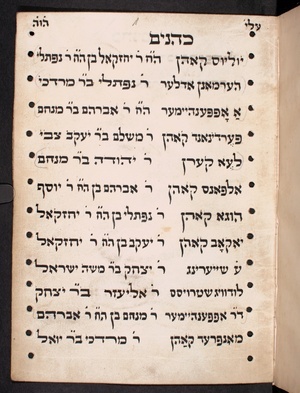 עלי 1 הזה
כהנים
יוליוס קאהן הח׳ ר׳ יחזקאל בן הח׳ ר׳ נפתלי
הערמאנן אדלער ר׳ נפתלי בר׳ מרדכי
א אפפענהיימער הח׳ ר׳ אברהם בר׳ מנחם
פערדינאנד קאהן ר׳ משלם בר׳ יעקב צבי
לעא קערן ר׳ יהודה בר׳ מנחם
אלפאנס קאהן ר׳ אברהם בן הח׳ ר׳ יוסף
הוגא קאהן ר׳ נפתלי בן הח׳ ר׳ יחזקאל
יאקאב קאהן ר׳ יעקב בן הח׳ ר׳ יחזקאל
ע שייערינג ר׳ יצחק בר׳ משה ישראל
לודוויג שטרויסס ר׳ אליעזר בר׳ יצחק
דר׳ אפפענהיימער ר׳ מנחם בן הח׳ ר׳ אברהם
מאנפרעד קאהן ר׳ מרדכי בר׳ יואל